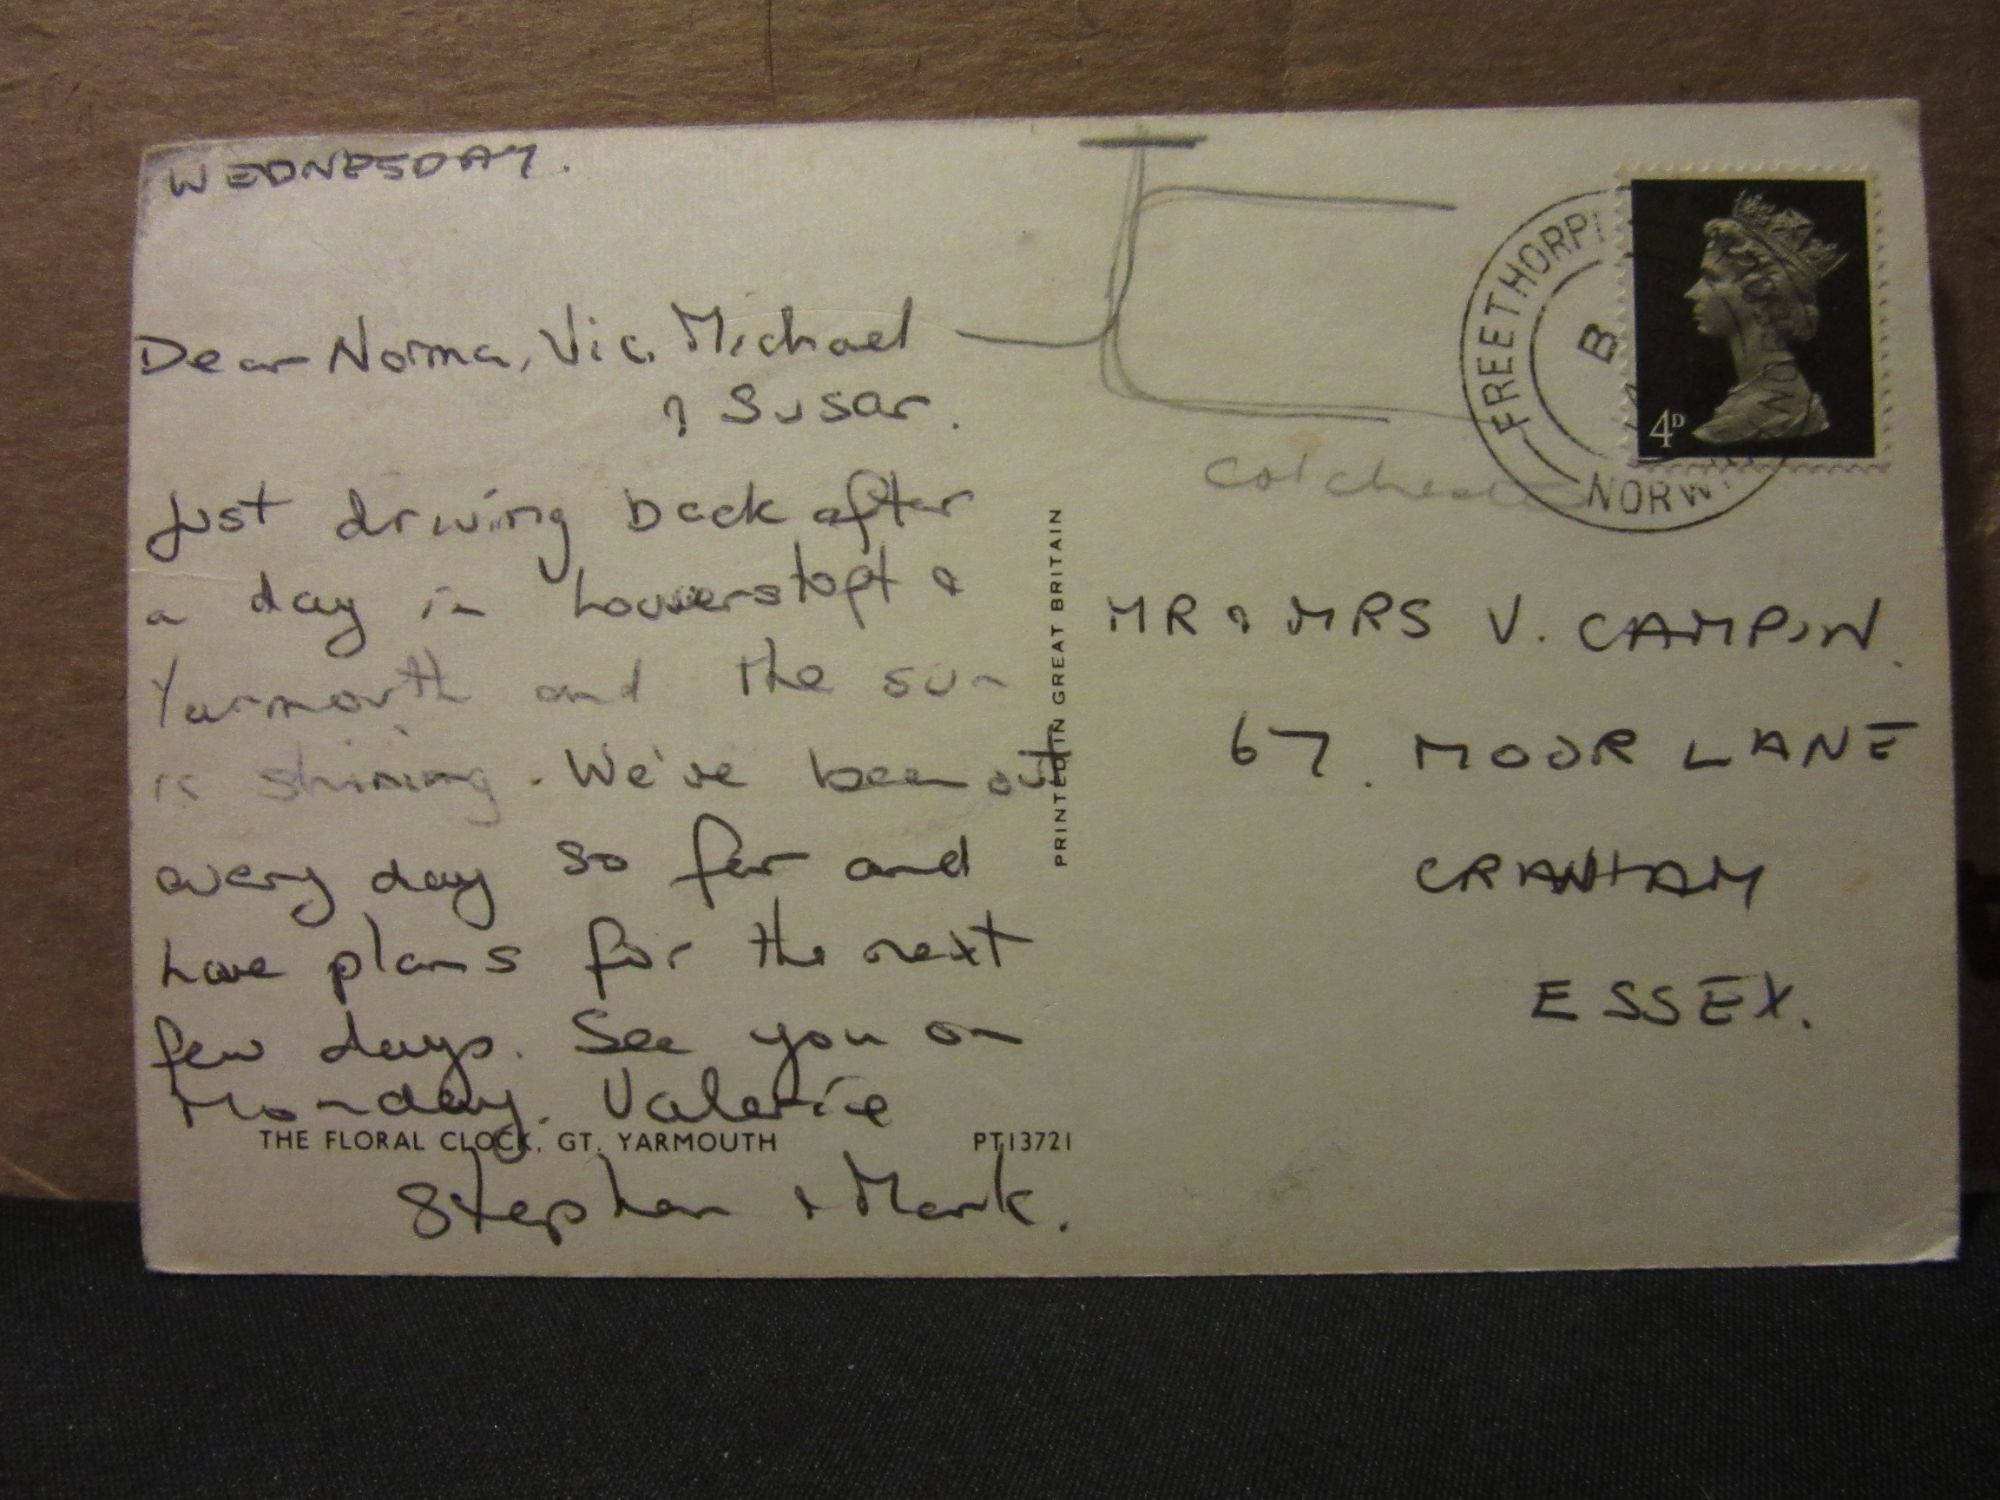 WEDNESDAY.
Dear Norma, Vic, Michael
& Susan.
Just driving back after
a day in Lowerstoft &
Yarmouth and the sun
is shining. We've been out
every day so far and
have plans for the next
few days. See you on
Monday. Valerie
Stephen & Mark.
THE FLORAL CLOCK, GT. YARMOUTH
PT13721
PRINTED IN GREAT BRITAIN
FREETHORPE
B
NORWICH
4D
Colchester
MR & MRS V. CAMPIN.
67. MOOR LANE
CRANHAM
ESSEX.